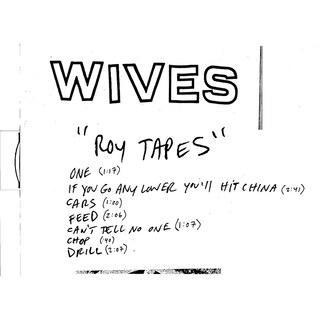 WIVES
"ROY TAPES"
ONE (1:17)
IF YOU GO ANY LOWER YOU'll HIT CHINA (2:41)
CARS (1:00)
FEED (2:06)
CAN'T TELL NO ONE (1:07)
CHOP (:40)
DRILL (2:07)